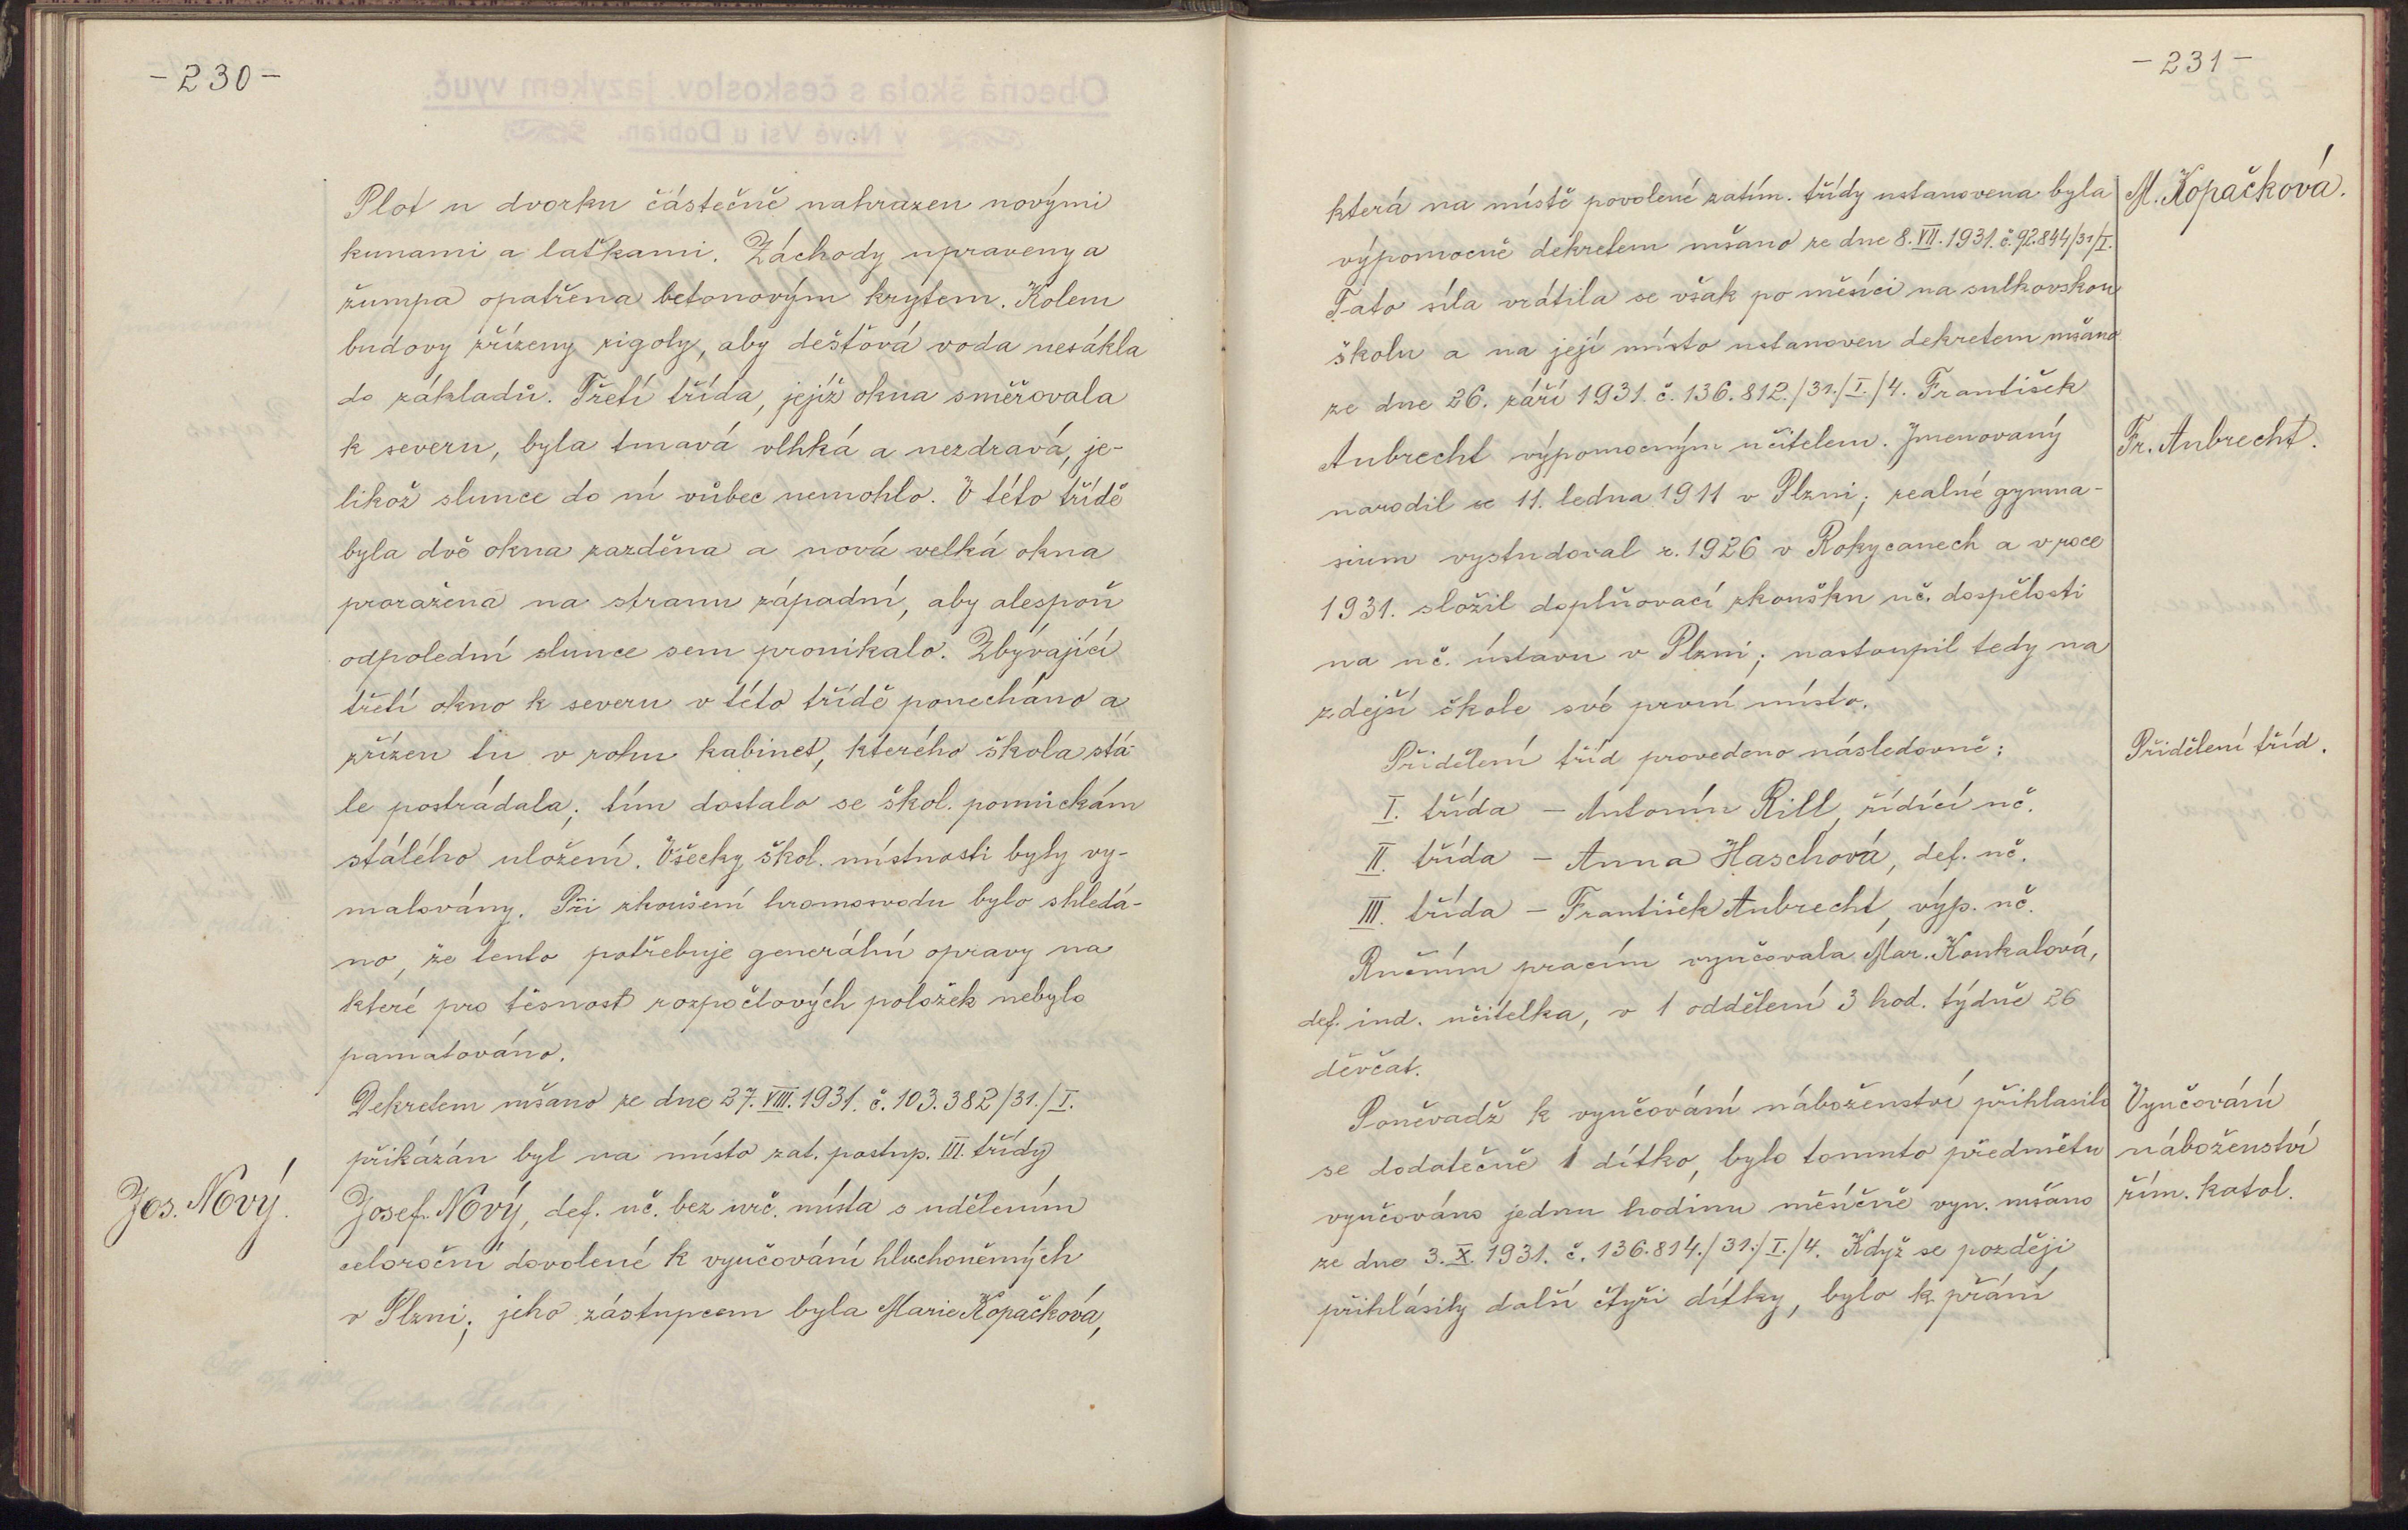 -230-
Plot u dvorku částečně nahrazen novými
kunami a laťkami. Záchody upraveny a
žumpa opatřena betonovým krytem. Kolem
budovy zřízeny rigoly, aby dešťová voda nesákla
do základů. Třetí třída, jejíž okna směřovala
k severu, byla tmavá vlhká a nezdravá, je-
likož slunce do ní vůbec nemohlo. V této třídě
byla dvě okna zazděna a nová velká okna
proražena na stranu západní, aby alespoň
odpolední slunce sem pronikalo. Zbývající
třetí okno k severu v této třídě ponecháno a
zřízen tu v rohu kabinet, kterého škola stá-
le postrádala; tím dostalo se škol. pomůckám
stálého uložení. Všecky škol. místnosti byly vy-
malovány. Při zkoušení hromosvodu bylo shledá-
no, že tento potřebuje generální opravy na
které pro těsnost rozpočtových položek nebylo
pamatováno.
Dekretem mšano ze dne 27. VIII. 1931. č. 103.382/31./I.
přikázán byl na místo zat. postup. III. třídy
Jos. Nový.
Josef Nový, def. uč. bez urč. místa s udělením
celoroční dovolené k vyučování hluchoněmých
v Plzni; jeho zástupcem byla Marie Kopačková,
-231-
která na místě povolené zatím. třídy ustanovena byla
M. Kopačková.
výpomocně dekretem mšano ze dne 8. VII. 1931. č. 92.844/31/I.
Tato síla vrátila se však po měsíci na sulkovskou
školu a na její místo ustanoven dekretem mšano
ze dne 26. září 1931. č. 136.812./31./I./4. František
Aubrecht výpomocným učitelem. Jmenovaný
Fr. Aubrecht.
narodil se 11. ledna 1911 v Plzni; reálné gymna-
sium vystudoval r. 1926 v Rokycanech a v roce
1931. složil doplňovací zkoušku uč. dospělosti
na uč. ústavu v Plzni; nastoupil tedy na
zdejší škole své první místo.
Přidělení tříd provedeno následovně:
Přidělení tříd.
I. třída - Antonín Rill, řídící uč.
II. třída - Anna Haschová, def. uč.
III. třída - František Aubrecht, výp. uč.
Ručním pracím vyučovala Mar. Koukalová,
def. ind. učitelka, v 1 oddělení 3 hod. týdně 26
děvčat.
Poněvadž k vyučování náboženství přihlasilo
Vyučování
se dodatečně 1 dítko, bylo tomuto předmětu
náboženství
vyučováno jednu hodinu měsíčně vyn. mšano
řím. katol.
ze dne 3. X. 1931. č. 136.814./31./I./4. Když se později
přihlásily další čtyři dítky, bylo k přání